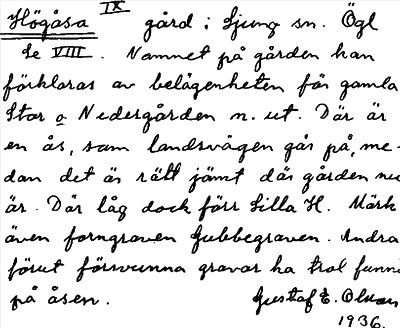 Högåsa IX gård i Ljung sn. Ögl
Se VIII. Namnet på gården kan
förklaras av belägenheten för gamla
Stor o Nedergården n. ut. Där är
en ås, som landsvägen går på, me-
dan det är rätt jämt där gården nu
är. Där låg dock förr Lilla H. Märk
även forngraven Gubbegraven. Andra
förut försvunna gravar ha trol funni
på åsen. Gustaf E. Olsson
1936.